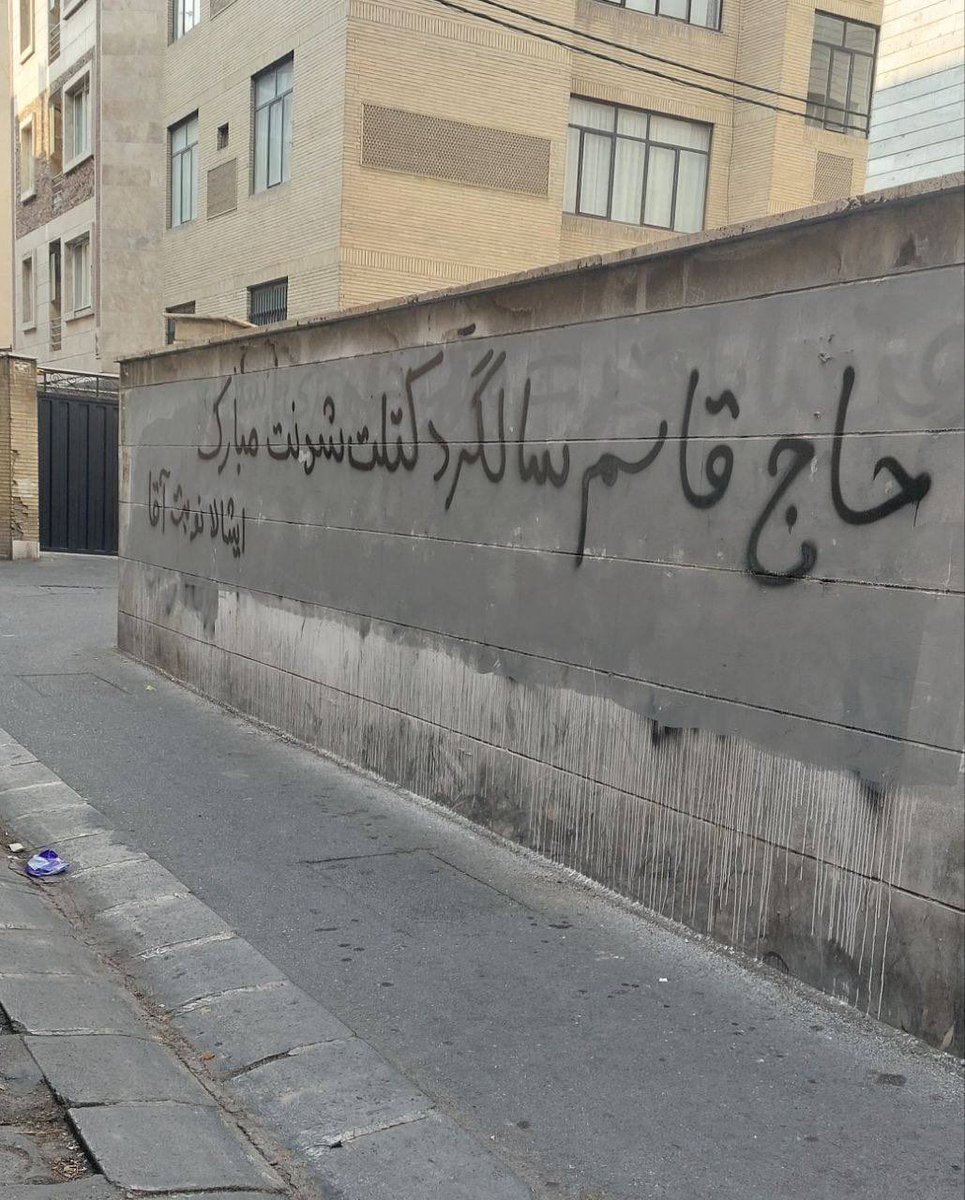 حاج قاسم سالگرد کتلت شدنت مبارک
ایشالا نوبت آقا